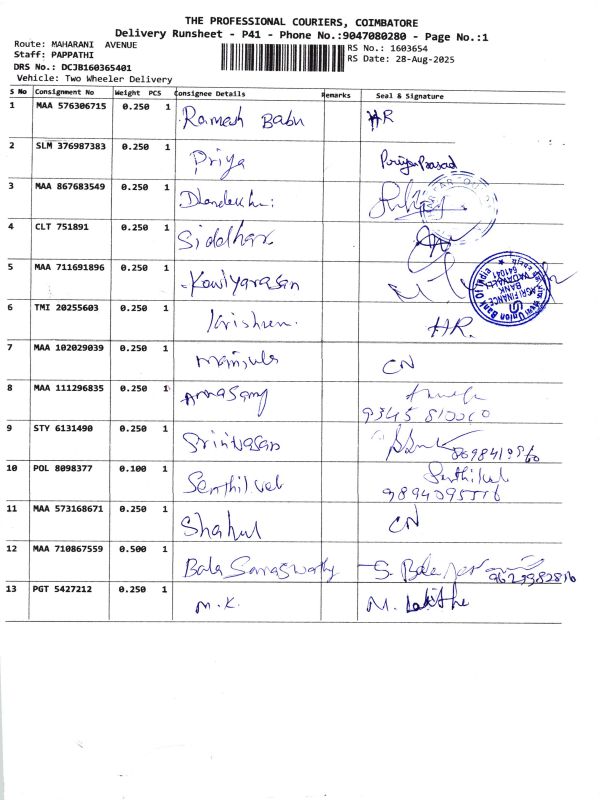 THE PROFESSIONAL COURIERS, COIMBATORE
Delivery Runsheet - P41 - Phone No.:9047080280 - Page No.:1
Route: MAHARANI AVENUE
RS No.: 1603654
Staff: PAPPATHI
RS Date: 28-Aug-2025
DRS No.: DCJB160365401
Vehicle: Two Wheeler Delivery
S No Consignment No Weight PCS Consignee Details Remarks Seal & Signature
1 MAA 576306715 0.250 1 Ramesh Babu HR
2 SLM 376987383 0.250 1 Priya PriyaPrasad
3 MAA 867683549 0.250 1
4 CLT 751891 0.250 1 Siddhar
5 MAA 711691896 0.250 1 Kaviyarasan
Union Bank Of India
AGRI FINANCE
BANK
VADAVALLI
641041
6 TMI 20255603 0.250 1 Krishnan. HR.
7 MAA 102029039 0.250 1 Manjula CN
8 MAA 111296835 0.250 1 Annasamy
9 STY 6131490 0.250 1 Srinivasan
10 POL 8098377 0.100 1 Senthilvel Senthilvel
11 MAA 573168671 0.250 1 Shahul CN
12 MAA 710867559 0.500 1 Bala Saraswathy S. Bala
13 PGT 5427212 0.250 1 M.K. M.